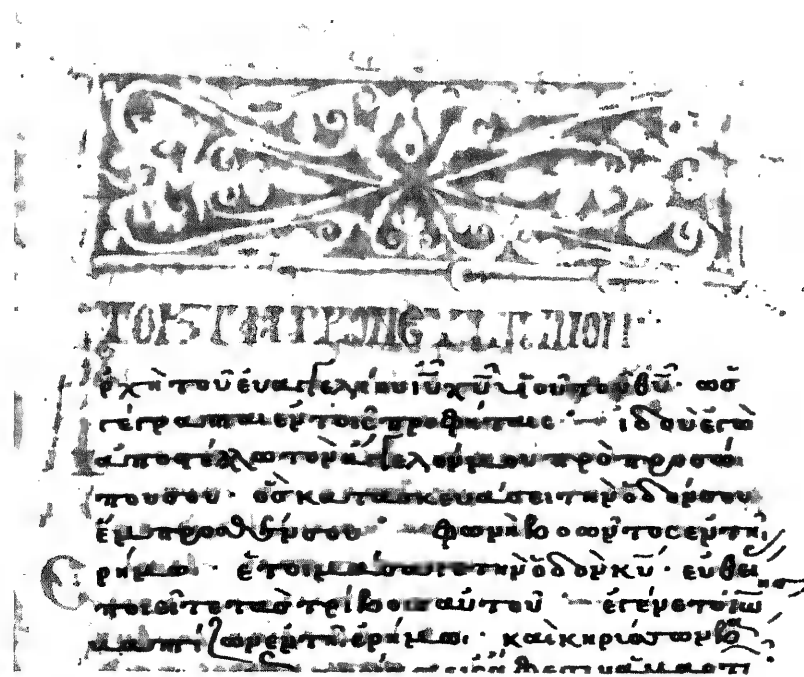 ΤΟ ΕΥΑΓΓΕΛΙΟΝ
ρχὴ τοῦ εὐαγγελίου ιῦ χῦ υἱοῦ τοῦ θῦ· ὡς
γέγραπται ἐν τοῖς προφήταις· ἰδοὺ ἐγὼ
ἀποστέλλω τὸν ἄγγελόν μου πρὸ προσώ
που σου· ὃς κατασκευάσει τὴν ὁδόν σου
ἔμπροσθέν σου· φωνὴ βοῶντος ἐν τῇ
Ερήμω· ἑτοιμάσατε τὴν ὁδὸν κῦ· εὐθεί
ποιεῖτε τὰς τρίβους αὐτοῦ· ἐγένετο ἰω
βαπτίζων ἐν τῇ ἐρήμω· καὶ κηρύσσων